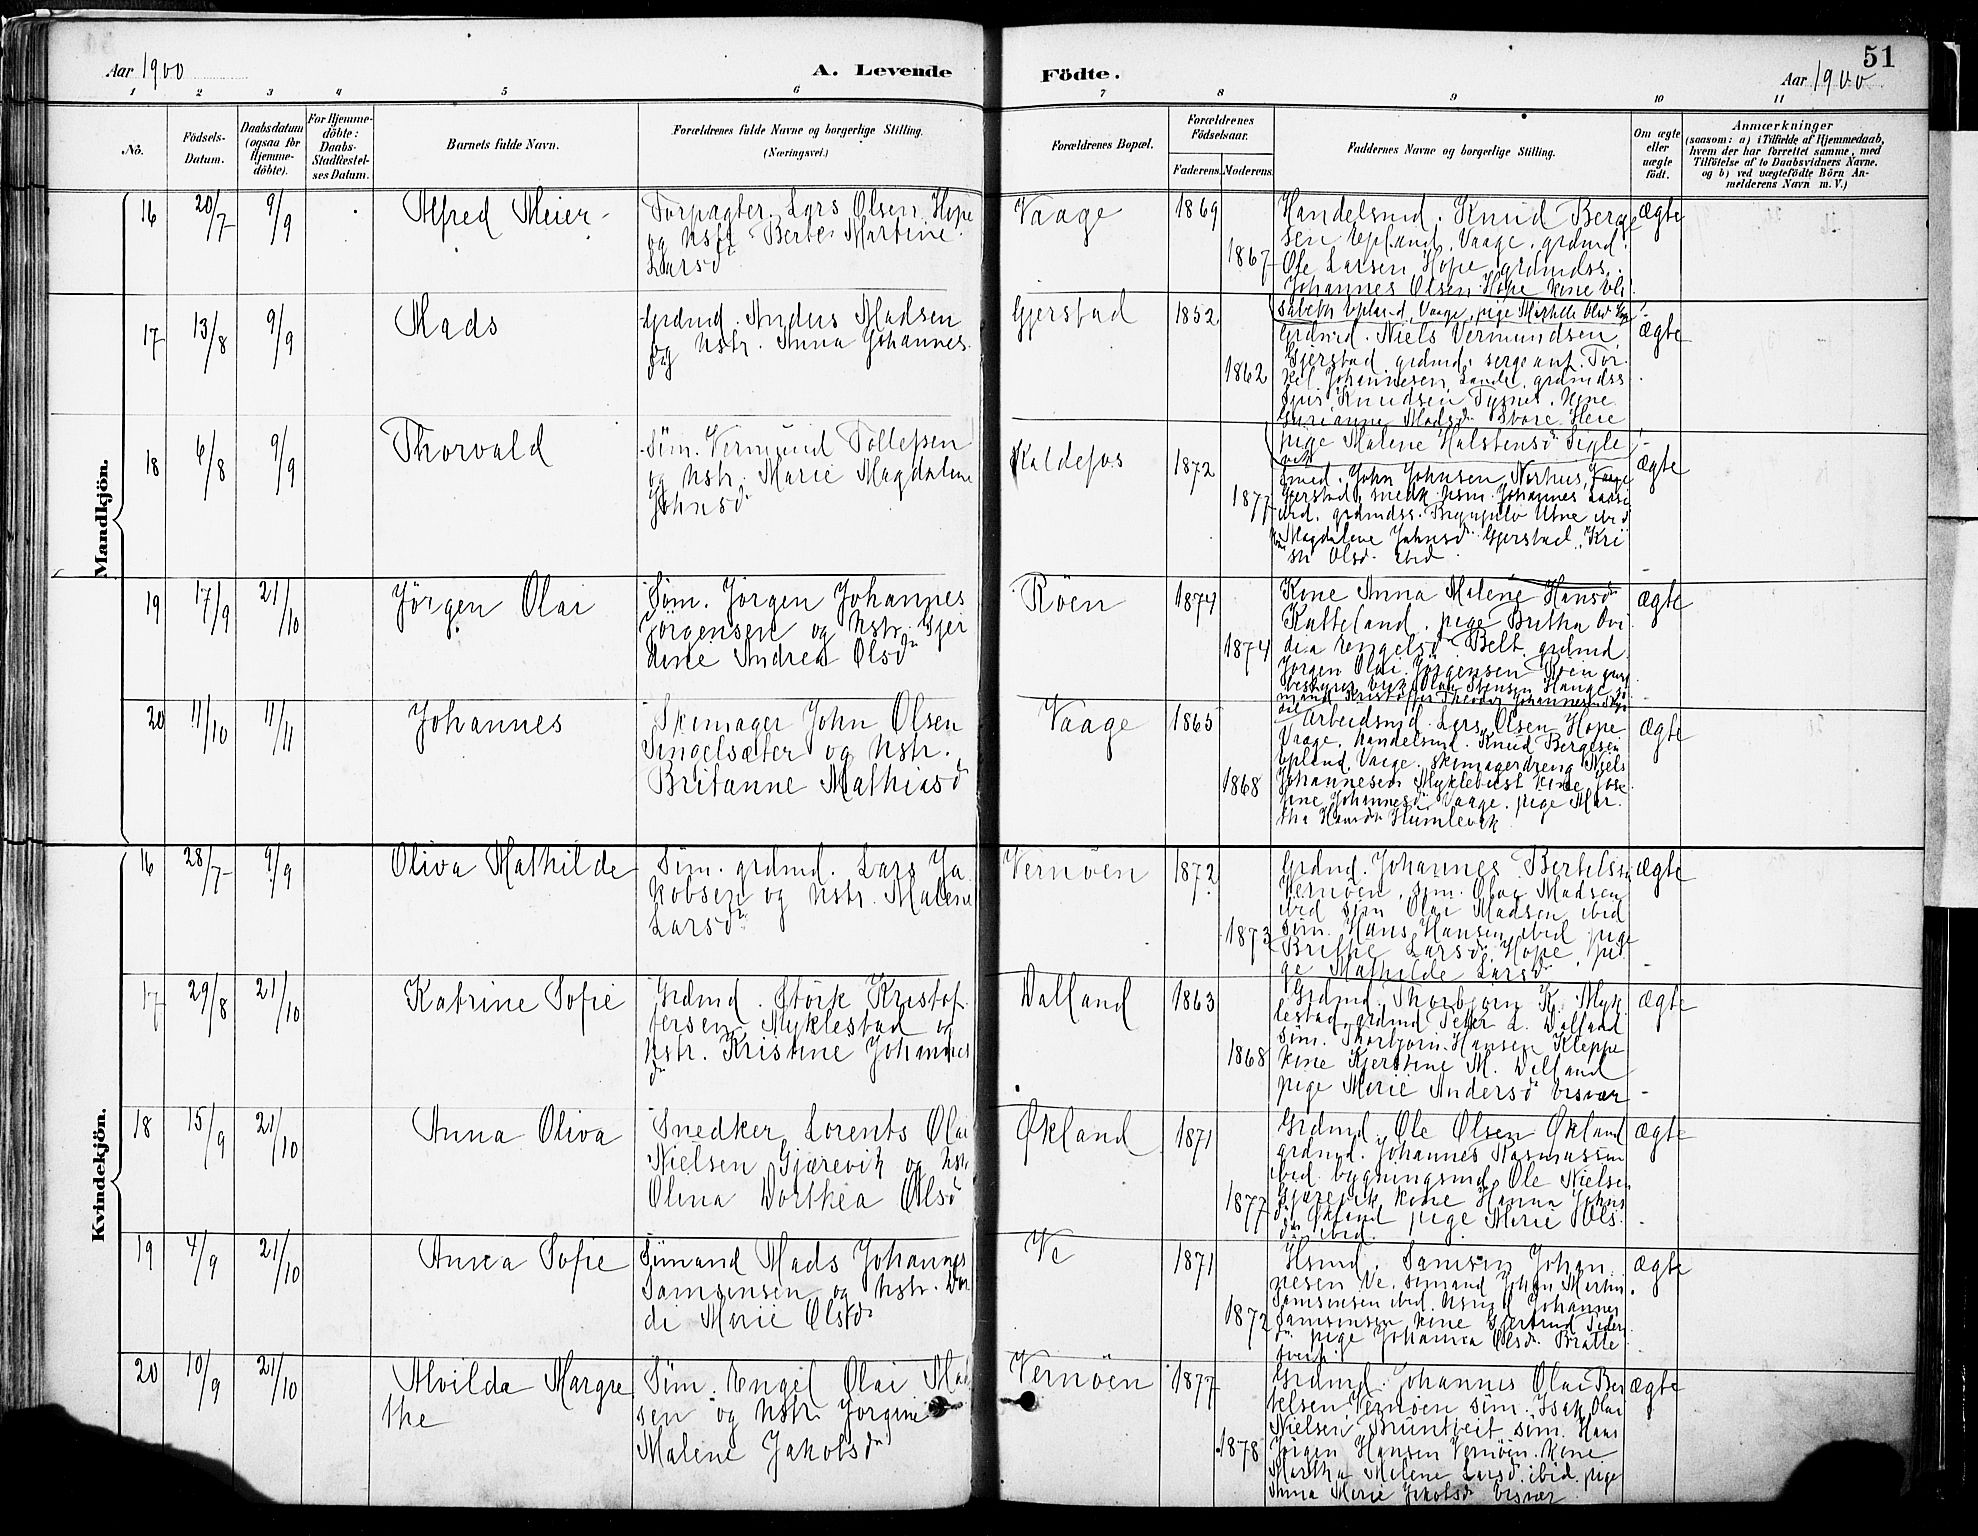 51
Aar 1900
A. Levende
Födte.
Aar 1900
1 2 3 4 5 6 7 8 9 10 11
No.
Födsels-Datum.
Daabsdatum (ogsaa for Hjemme-döbte).
For Hjemme-döbte: Daabs-Stadfæstel-ses Datum.
Barnets fulde Navn.
Forældrenes fulde Navne og borgerlige Stilling.
(Næringsvei.)
Forældrenes Bopæl.
Forældrenes Födselsaar.
Faderens. Moderens.
Faddernes Navne og borgerlige Stilling.
Om ægte eller uægte födt.
Anmærkninger
(saasom: a) i Tilfælde af Hjemmedaab,
hvem der har forrettet samme, med
Tilföielse af to Daabsvidners Navne.
og b) ved uægtefödte Börn An-
melderens Navn m. V.)
Mandkjön.
16 20/7 9/9 Alfred Meier
Forpagter Lars Olsen Hope
og hstr Berte Martine
Larsd
Vaage 1869 1867
Handelsmd. Knud Berge
sen Epland, Vaage, grdmd.
Ole Larsen Hope, grdmdss.
Johannes Olsen Hope kone Eli
sabeth Epland, Vaage, pige Mathilde Olsd Hope
ægte
17 13/8 9/9 Mads
Grdmd. Anders Madsen
og hstr. Anna Johannes
Gjerstad 1852 1862
Grdmd. Niels Vermundsen
Gjerstad, grdmd, sergeant Tor
kel Johannesen Landet, grdmdss
Knudsen Tysnes, kone
Madsd
pige Malene Halstensd Sigle
vik
ægte
18 6/8 9/9 Thorvald
Søm. Vermund Tollefsen
og hstr. Marie Magdalene
Johnsd
Kaldefos 1872 1877
Smed. John Johnsen Nerhus,
Gjerstad, hsm. Johannes
ibid, grdmdss. Brynjulv Utne ibid
Magdalene Johnsd Gjerstad, Kri
sti Olsd ibid
ægte
19 17/9 21/10 Jörgen Olai
Søm. Jörgen Johannes
Jörgensen og hstr. Gjer
dine Andrea Olsd
Röen 1874 1874
Kone Anna Malene Hansd
Katteland, pige Britha Ovi
dia Engelsd Belt, grdmd.
Jörgen Olai Jörgensen Röen
Olai Stensen Hauge
Kristoffer Theodor Johannesen
ægte
20 11/10 11/11 Johannes
Skomager John Olsen
Singelsæter og hstr.
Britanne Mathiasd
Vaage 1865 1868
Arbeidsmd. Lars Olsen Hope
Vaage, handelsmd. Knud Bergesen
Epland, Vaage, skomagerdreng Niels
Johannesen Myklebust kone Jose
fine Johannesd Vaage, pige Mar
tha Hansd Humlevik
ægte
Kvindekjön.
16 28/7 9/9 Oliva Mathilde
Søm. grdmd. Lars Ja
kobsen og hstr. Malene
Larsd
Vernöen 1872 1873
Grdmd. Johannes Bertelsen
Vernöen, søm. Olai Madsen
ibid søm Olai Madsen ibid
søm. Hans Hansen ibid pige
Brithe Larsd Hope, pi
ge Mathilde Larsd
ægte
17 29/8 21/10 Katrine Sofie
Grdmd. Störk Kristof
fersen Myklestad og
hstr. Kristine Johannes
d
Dalland 1863 1868
Grdmd. Thorbjörn K. Myk
lestad, grdmd Peder L. Dalland
søm. Thorbjörn Hansen Kleppe
kone Kjerstine M. Dalland
pige Marie Andersd Épsvær
ægte
18 15/9 21/10 Anna Oliva
Snedker Lorents Olai
Nielsen Gjærevik og hstr
Olina Dorthea Olsd
Økland 1871 1877
Grdmd. Ole Olsen Økland
grdmd. Johannes Rasmussen
ibid. bygningsmd Ole Nielsen
Gjærevik kone Hanna Johns
d Økland pige Marie Ols
d ibid.
ægte
19 4/9 21/10 Anna Sofie
Sømand Mads Johannes
Samsonsen og hstr. Dor
di Marie Olsd
Ve 1871 1872
Hsmd. Samson Johan
nesen Ve, sømand Johan Martin
Samsonsen ibid. hsmd Johannes
Samsonsen kone Gjertrud Peder
d pige Johanna Olsd Bratte
tveit
ægte
20 10/9 21/10 Alvilda Margre
the
Søm. Engel Olai Mad
sen og hstr Jorgine
Malene Jakobsd
Vernöen 1877 1878
Grdmd. Johannes Olai Ber
telsen Vernöen søm. Isak Olai
Nielsen Bruntveit søm. Hans
Jörgen Hansen Vernöen kone
Martha Malene Larsd. ibid. pige
Anna Marie Jakobsd
ægte